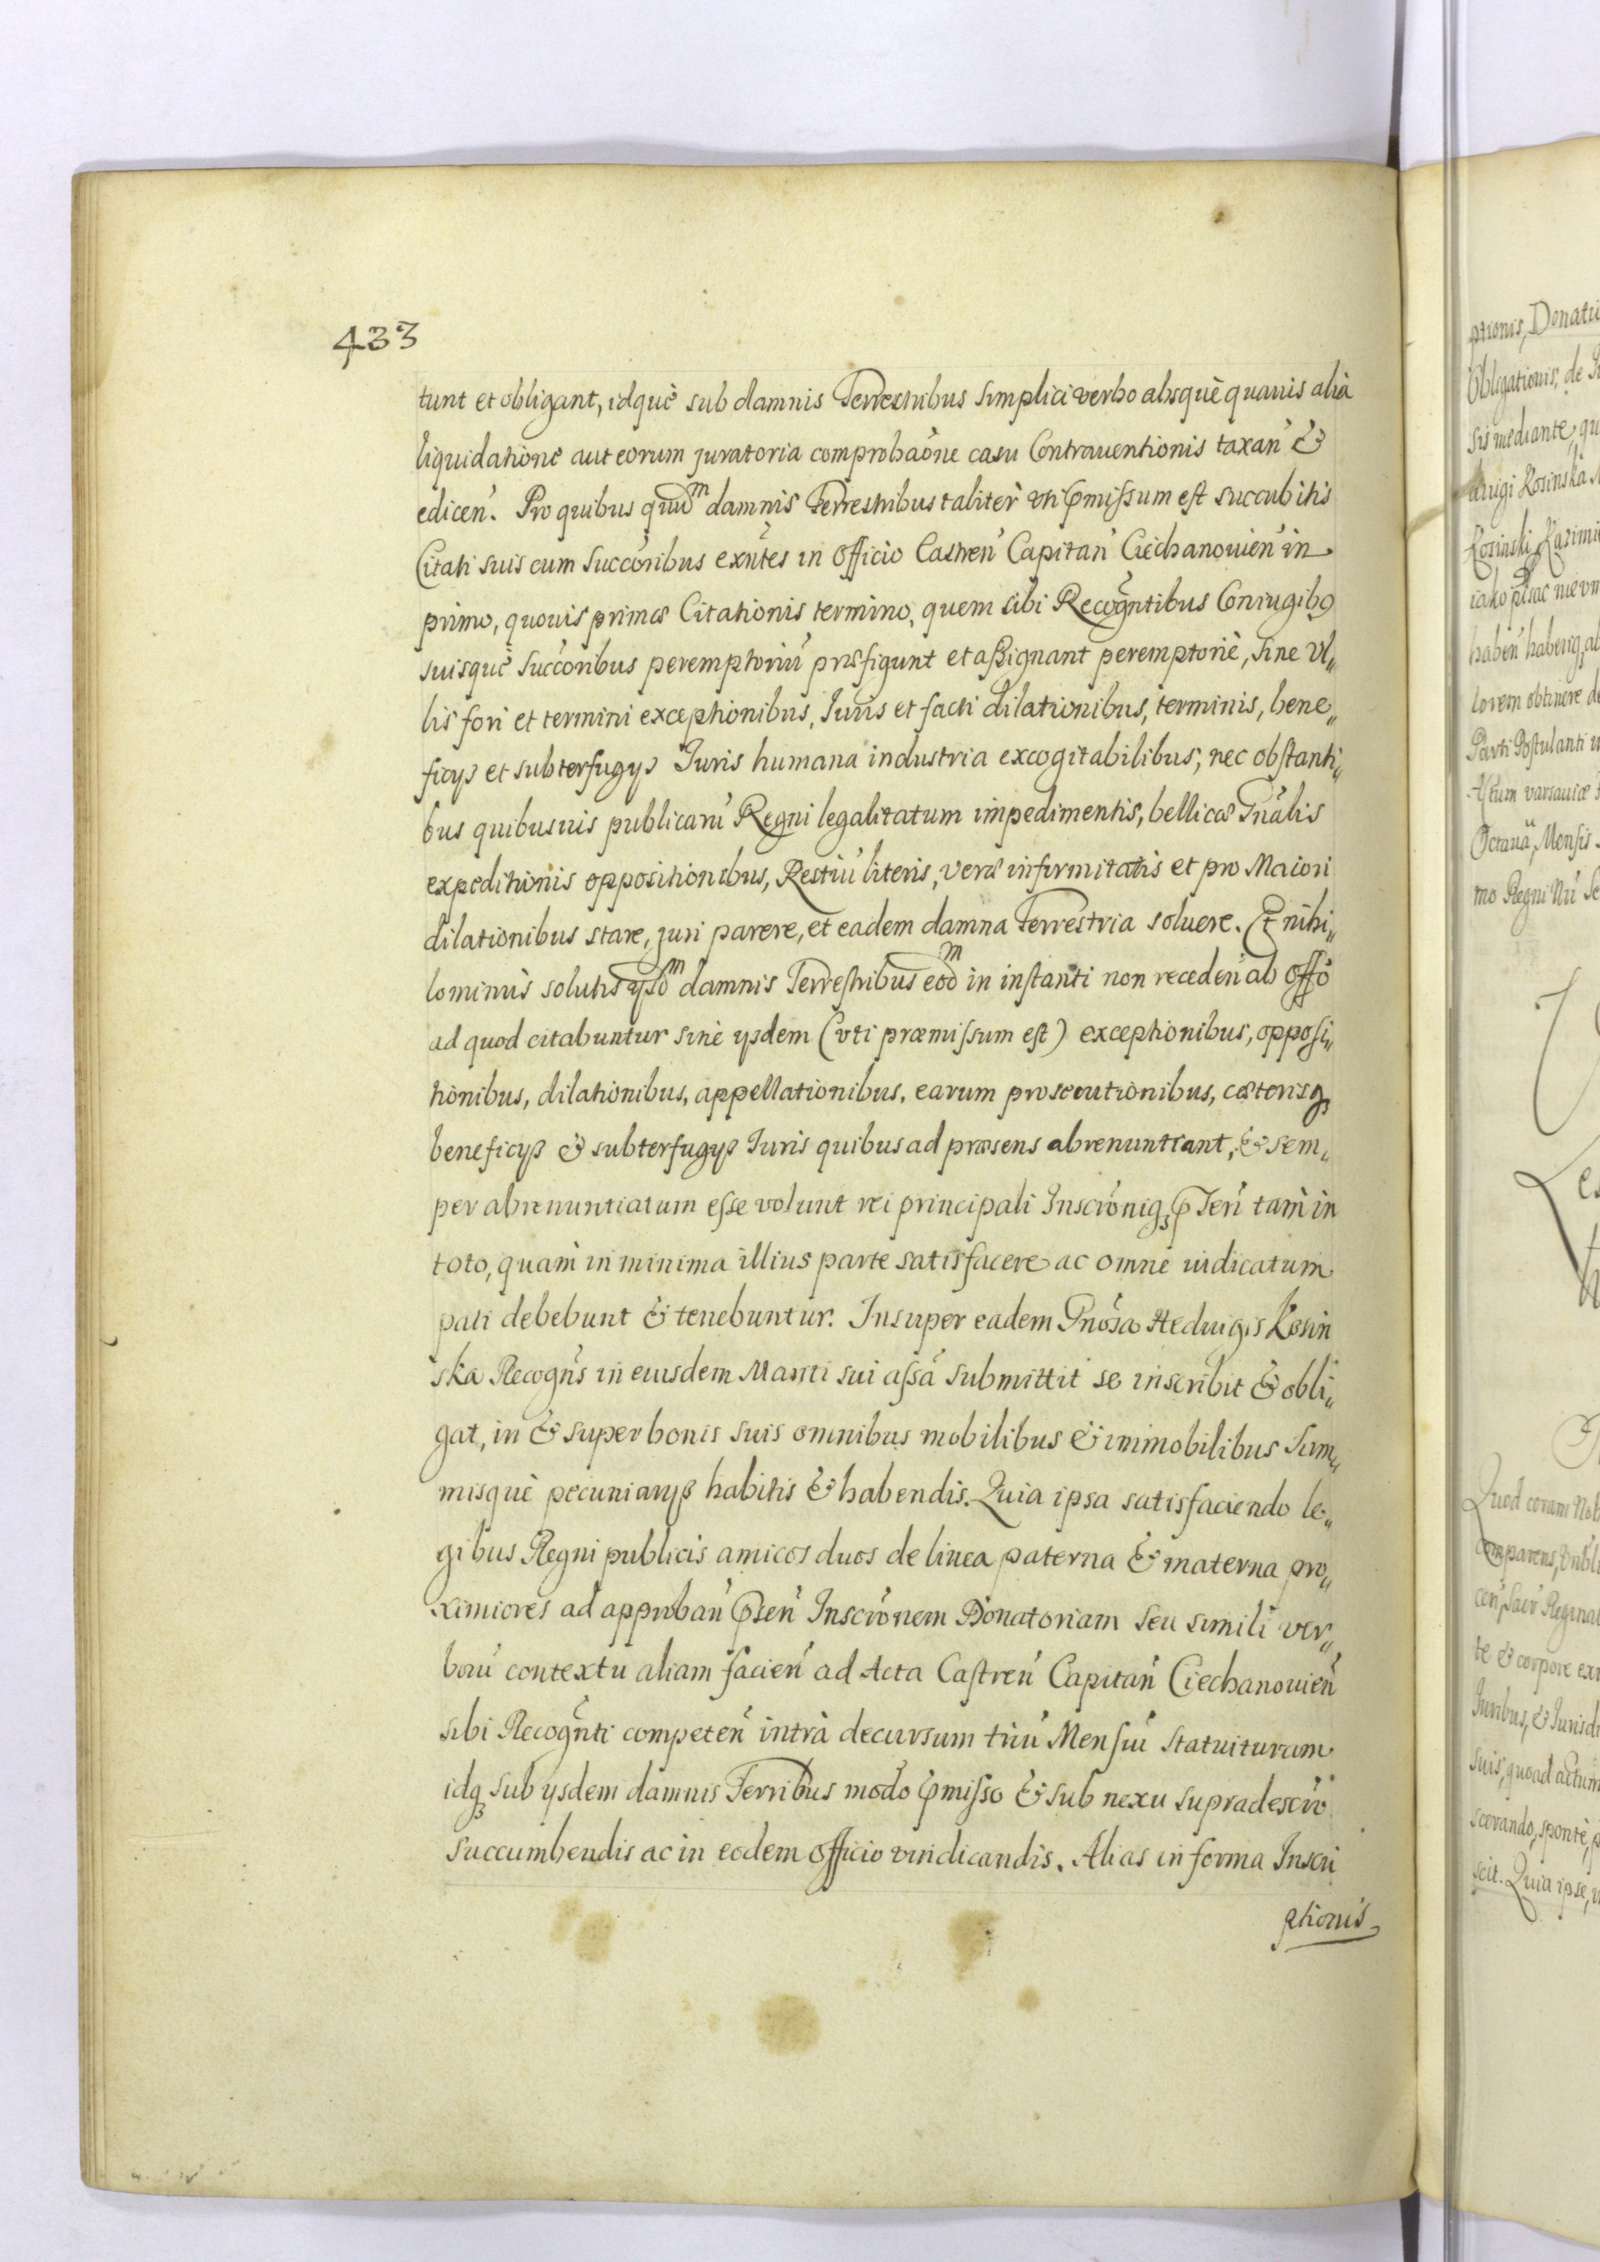 433
tunt et obligant, idquè sub damnis Terrestribus simplici verbo absquè quauis alià
liquidatione aut eorum juratoria comprobaõne casu Contrauentionis taxan̄ &
edicen̄. Pro quibus quid͞m damnis Terrestribus taliter vti p̄missum est succubitis
Citati suis cum Succõribus exñtes in Officio Castren̄ Capitan̄ Ciechanouien̄ in
primo, quouis primæ Citationis termino, quem sibi Recogn̄tibus Coniugibꝯ
suisquè succõribus peremptoriū præfigunt et aßignant peremptoriè, sine Vl„
lis fori et termini exceptionibus, Juris et facti dilationibus, terminis, bene„
ficys et subterfugys Juris humana industria excogitabilibus, nec obstanti„
bus quibusuis publicarū Regni legalitatum impedimentis, bellicæ Gnãlis
expeditionis oppositionibus, Restiū literis, veræ infirmitatis et pro Maiori
dilationibus stare, juri parere, et eadem damna Terrestria soluere. Et nihi„
lominus solutis ysd͞m damnis Terrestribus eod͞m in instanti non receden̄ ab Offõ
ad quod citabuntur sinè ysdem (vti præmissum est) exceptionibus, opposi„
tionibus, dilationibus, appellationibus, earum prosecutionibus, cæterisqꝫ
beneficyß & subterfugyß Juris quibus ad præsens abrenuntiant, & sem„
per abrenuntiatum esse volunt rei principali Inscrõniqꝫ p̄ Teri tam in
toto, quam in minima illius parte satisfacere ac omne iudicatum
pati debebunt & tenebuntur. Insuper eadem Gnõsa Heduigis Kosin
ska Recogn̄s in eiusdem Mariti sui assã submittit se inscribit & obli„
gat, in & super bonis suis omnibus mobilibus & immobilibus Sum„
misquè pecuniaryß habitis & habendis. Quia ipsa satisfaciendo le„
gibus Regni publicis amicos duos de linea paterna & materna pro„
ximiores ad approban̄ p̄sen̄ Inscrõnem Donatoriam seu simili ver„
borū contextu aliam facien̄ ad Acta Castren̄ Capitan̄ Ciechanouien̄
sibi Recogn̄ti competen̄ intrà decursum triū Mensiū statuituram
idqꝫ sub ysdem damnis Terribus modo p̄misso & sub nexu supradescrõ
succumbendis ac in eodem Officio vindicandis. Alias in forma Inscri
ptionis
ptionis, Donati
Obligationis, de
sis mediante, qu
duigi Kosinska
Kosinski, Kazimi
iako pisac nie vm
haben̄ haberiqꝫ
lorem obtinere de
Parti Postulanti
Actum varsauiæ
Octauā, Mensis
mo Regni Nri Se
Quod coram
comparens,
cen̄, Sacr̄ Regina
te & corpore exi
Juribus, & Jurisdi
suis, quoad actum
scerando, spontè,
scit. Quia ipse,